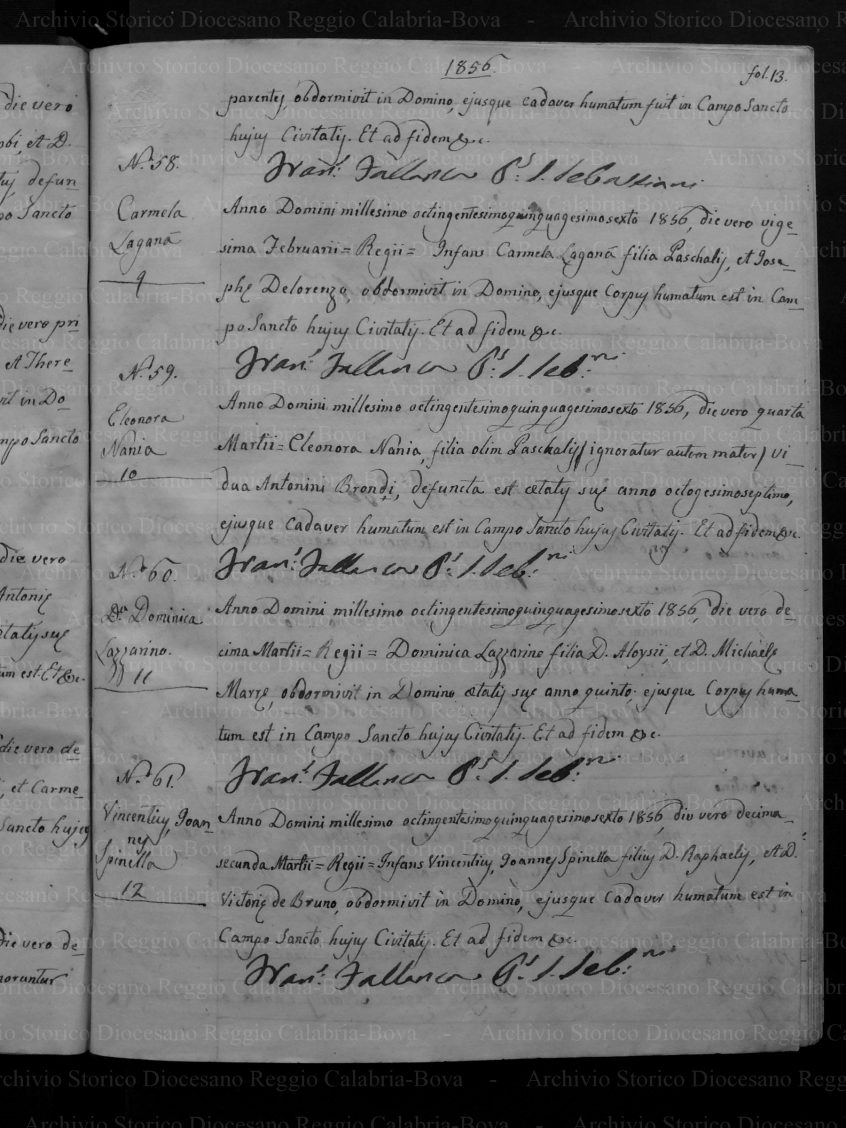 1856.
fol. 13.
parentes, obdormivit in Domino, ejusque cadaver humatum fuit in Campo Sancto
hujus Civitatis. Et ad fidem &c.
Fran.s Fallanca P.s S. Sebastiani
N.º 58.
Carmela
Laganà
9
Anno Domini millesimo octingentesimoquinquagesimosexto 1856, die vero vige=
sima Februarii = Regii = Infans Carmela Laganà filia Paschalis, et Jose=
phę Delorenzo, obdormivit in Domino, ejusque Corpus humatum est in Cam=
po Sancto hujus Civitatis. Et ad fidem &c.
Fran.s Fallanca P.s S. Seb.ni
N.º 59.
Eleonora
Nania
10
Anno Domini millesimo octingentesimoquinquagesimosexto 1856, die vero quarta
Martii = Eleonora Nania, filia olim Paschalis / ignoratur autem mater / vi=
dua Antonini Brondi, defuncta est ætatis suę anno octogesimoseptimo,
ejusque cadaver humatum est in Campo Sancto hujus Civitatis. Et ad fidem &c.
Fran.s Fallanca P.s S. Seb.ni
N.º 60.
D.a Dominica
Lazzarino.
11
Anno Domini millesimo octingentesimoquinquagesimosexto 1856, die vero de=
cima Martii = Regii = Dominica Lazzarino filia D. Aloysii, et D. Michaelę
Marrę, obdormivit in Domino ætatis suę anno quinto, ejusque Corpus huma=
tum est in Campo Sancto hujus Civitatis. Et ad fidem &c.
Fran.s Fallanca P.s S. Seb.ni
N.º 61.
Vincentius, Joan=
nes
Spinella
12
Anno Domini millesimo octingentesimoquinquagesimosexto 1856, die vero decima=
secunda Martii = Regii = Infans Vincentius, Joannes Spinella filius D. Raphaelis, et D.
Victorię de Bruno, obdormivit in Domino, ejusque Cadaver humatum est in
Campo Sancto hujus Civitatis. Et ad fidem &c.
Fran.s Fallanca P.s S. Seb.ni